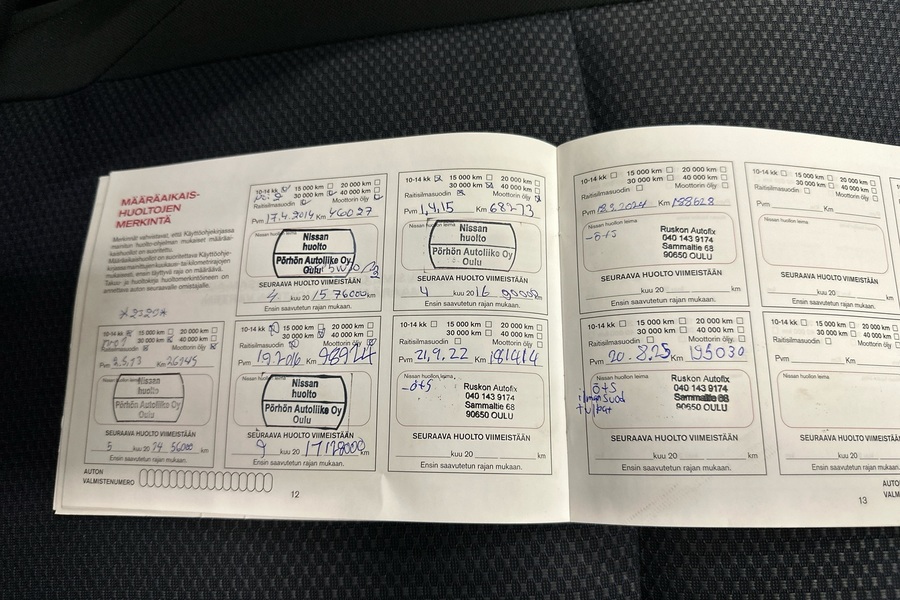 MÄÄRÄAIKAIS-
HUOLTOJEN
MERKINTÄ
10-14 kk 15 000 km 20 000 km
30 000 km 40 000 km
Raitisilmasuodin Moottorin öljy
Pvm 3.5.13 Km 26345
Nissan huollon leima
Nissan
huolto
Pörhön Autoliike Oy
Oulu
SEURAAVA HUOLTO VIIMEISTÄÄN
5 kuu 20 14 56000 km
Ensin saavutetun rajan mukaan.
AUTON
VALMISTENUMERO
10-14 kk 15 000 km 20 000 km
30 000 km 40 000 km
Raitisilmasuodin Moottorin öljy
Pvm 17.4.2014 Km 46027
Nissan huollon leima
Nissan
huolto
Pörhön Autoliike Oy
Oulu
SEURAAVA HUOLTO VIIMEISTÄÄN
4 kuu 20 15 76000 km
Ensin saavutetun rajan mukaan.
10-14 kk 15 000 km 20 000 km
30 000 km 40 000 km
Raitisilmasuodin Moottorin öljy
Pvm 1,4,15 Km 68273
Nissan huollon leima
Nissan
huolto
Pörhön Autoliike Oy
Oulu
SEURAAVA HUOLTO VIIMEISTÄÄN
4 kuu 20 16 km
Ensin saavutetun rajan mukaan.
10-14 kk 15 000 km 20 000 km
30 000 km 40 000 km
Raitisilmasuodin Moottorin öljy
Pvm Km 98924
Nissan huollon leima
Nissan
huolto
Pörhön Autoliike Oy
Oulu
SEURAAVA HUOLTO VIIMEISTÄÄN
9 kuu 20 17 128000 km
Ensin saavutetun rajan mukaan.
10-14 kk 15 000 km 20 000 km
30 000 km 40 000 km
Raitisilmasuodin Moottorin öljy
Pvm 21,9.22 Km 181414
Nissan huollon leima
-ö+s
Ruskon Autofix
040 143 9174
Sammaltie 68
90650 OULU
SEURAAVA HUOLTO VIIMEISTÄÄN
kuu 20 km
Ensin saavutetun rajan mukaan.
12
10-14 kk 15 000 km 20 000 km
30 000 km 40 000 km
Raitisilmasuodin Moottorin öljy
Pvm 18.9.2024 Km 188628
Nissan huollon leima
-ö+s
Ruskon Autofix
040 143 9174
Sammaltie 68
90650 OULU
SEURAAVA HUOLTO VIIMEISTÄÄN
kuu 20 km
Ensin saavutetun rajan mukaan.
10-14 kk 15 000 km 20 000 km
30 000 km 40 000 km
Raitisilmasuodin Moottorin öljy
Pvm Km
Nissan huollon leima
SEURAAVA HUOLTO VIIMEISTÄÄN
kuu 20 km
Ensin saavutetun rajan mukaan.
10-14 kk 15 000 km 20 000 km
30 000 km 40 000 km
Raitisilmasuodin Moottorin öljy
Pvm 20.8.25 Km 195030
ö+s
ilmansuod
tulpat
Ruskon Autofix
040 143 9174
Sammaltie 68
90650 OULU
SEURAAVA HUOLTO VIIMEISTÄÄN
kuu 20 km
Ensin saavutetun rajan mukaan.
10-14 kk 15 000 km 20 000 km
30 000 km 40 000 km
Raitisilmasuodin Moottorin öljy
Pvm Km
Nissan huollon leima
SEURAAVA HUOLTO VIIMEISTÄÄN
kuu 20 km
Ensin saavutetun rajan mukaan.
13